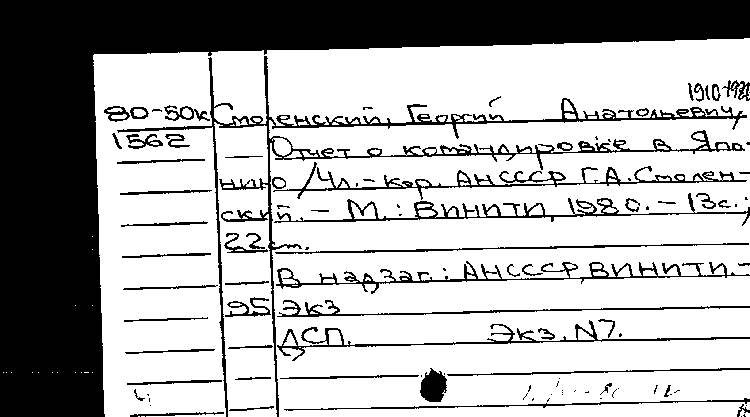 1910-1980
80-50к Смоленский, Георгий Анатольевич,
1562 Отчет о командировке в Япо-
нию / Чл.-кор. АНСССР Г.А. Смолен-
ский. - М.: ВИНИТИ, 1980. - 13с.;
22 cm.
В надзаг.: АНСССР, ВИНИТИ. -
95 экз
ДСП. Экз. N7.